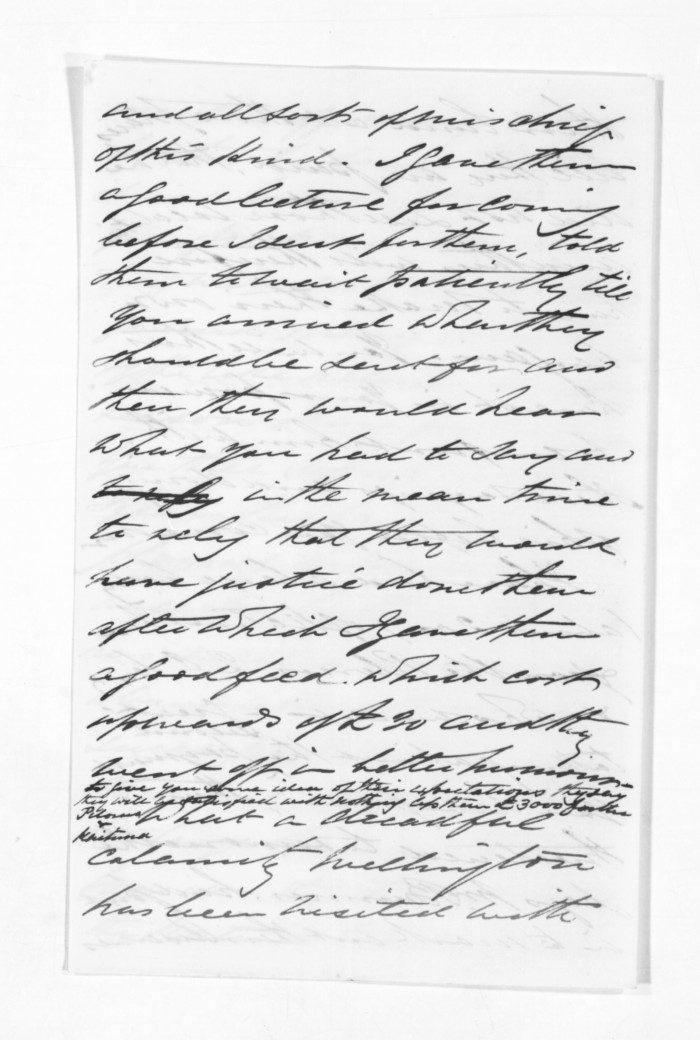 and all sorts of mischief
of this kind. I gave them
a good lecture for coming
before I sent for them, told
them to wait patiently till
you arrived when they
should be sent for and
then they would hear
what you had to say and
in the mean time
to rely that they would
have justice done them
after which I gave them
a good feed. Which cost
upwards of £20 and they
went off in better humour
to give you some idea of their expectations they say
they will be satisfied with nothing less than £3000 for the
Pitoone & What a dreadful
Kaituna
calamity Wellington
has been visited with